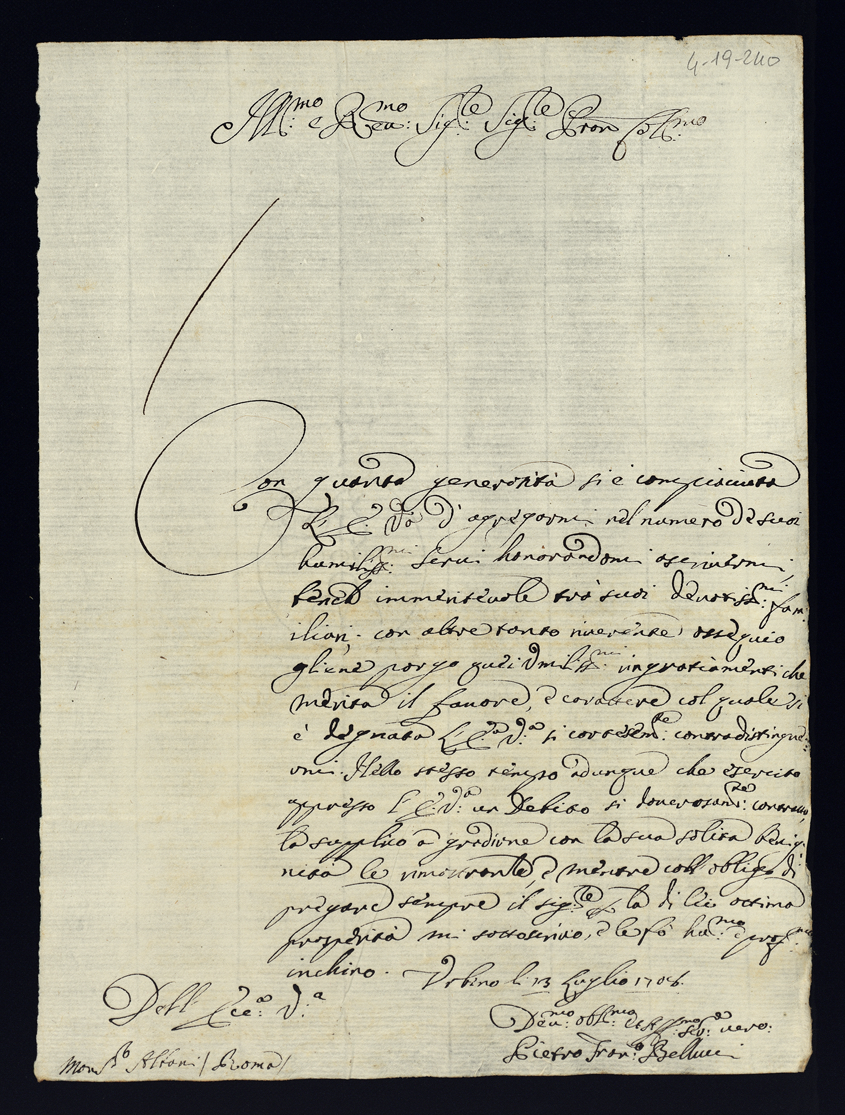 4-19-240
Ill:mo e Reu:mo Sig:re Sig:re Pron Coll:mo
Con quanta generosità si è compiaciuta
L'E: V:a d'agregarmi nel numero de suoi
humiliss:mi Serui honorandomi ascriuermi,
bench immeriteuole trà suoi deuotiss:mi fam:
iliari, con altre tanto riuerente ossequio
gliene porgo quei Vmiliss:mi ringratiamenti che
merita il fauore, e carattere col quale si
è degnata L'E:a V:a si cortesem:te contradistinguer
mi. Nello stesso tempo adunque che esercito
appresso L'E: V:a un Debito si douerosam:te contratto,
la supplico à gradirne con la sua solita benig
nità le rimostranze, e mentre coll'obligo di
pregare sempre il Sig:re p la di lei ottima
prosperità mi sottoscriuo, e le fò hu:ma e prof:ma
inchino. Vrbino li 13 Luglio 1706.
Dell' Ecc:a V:a
Deu:mo obl:mo et Aff:mo Ser:e vero:
Pietro Fran:co Bellucci
Mons:r Albani / Roma /